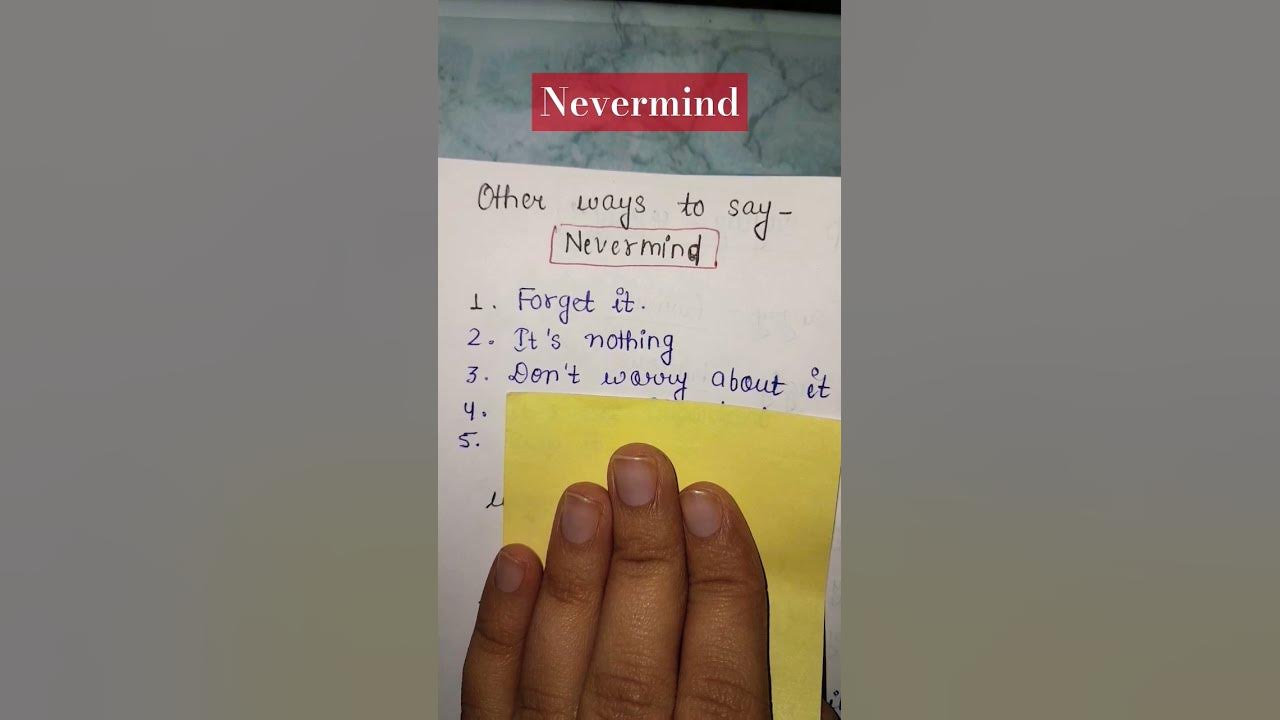 Nevermind
Other ways to say-
Nevermind
1. Forget it.
2. It's nothing
3. Don't worry about it
4.
5.